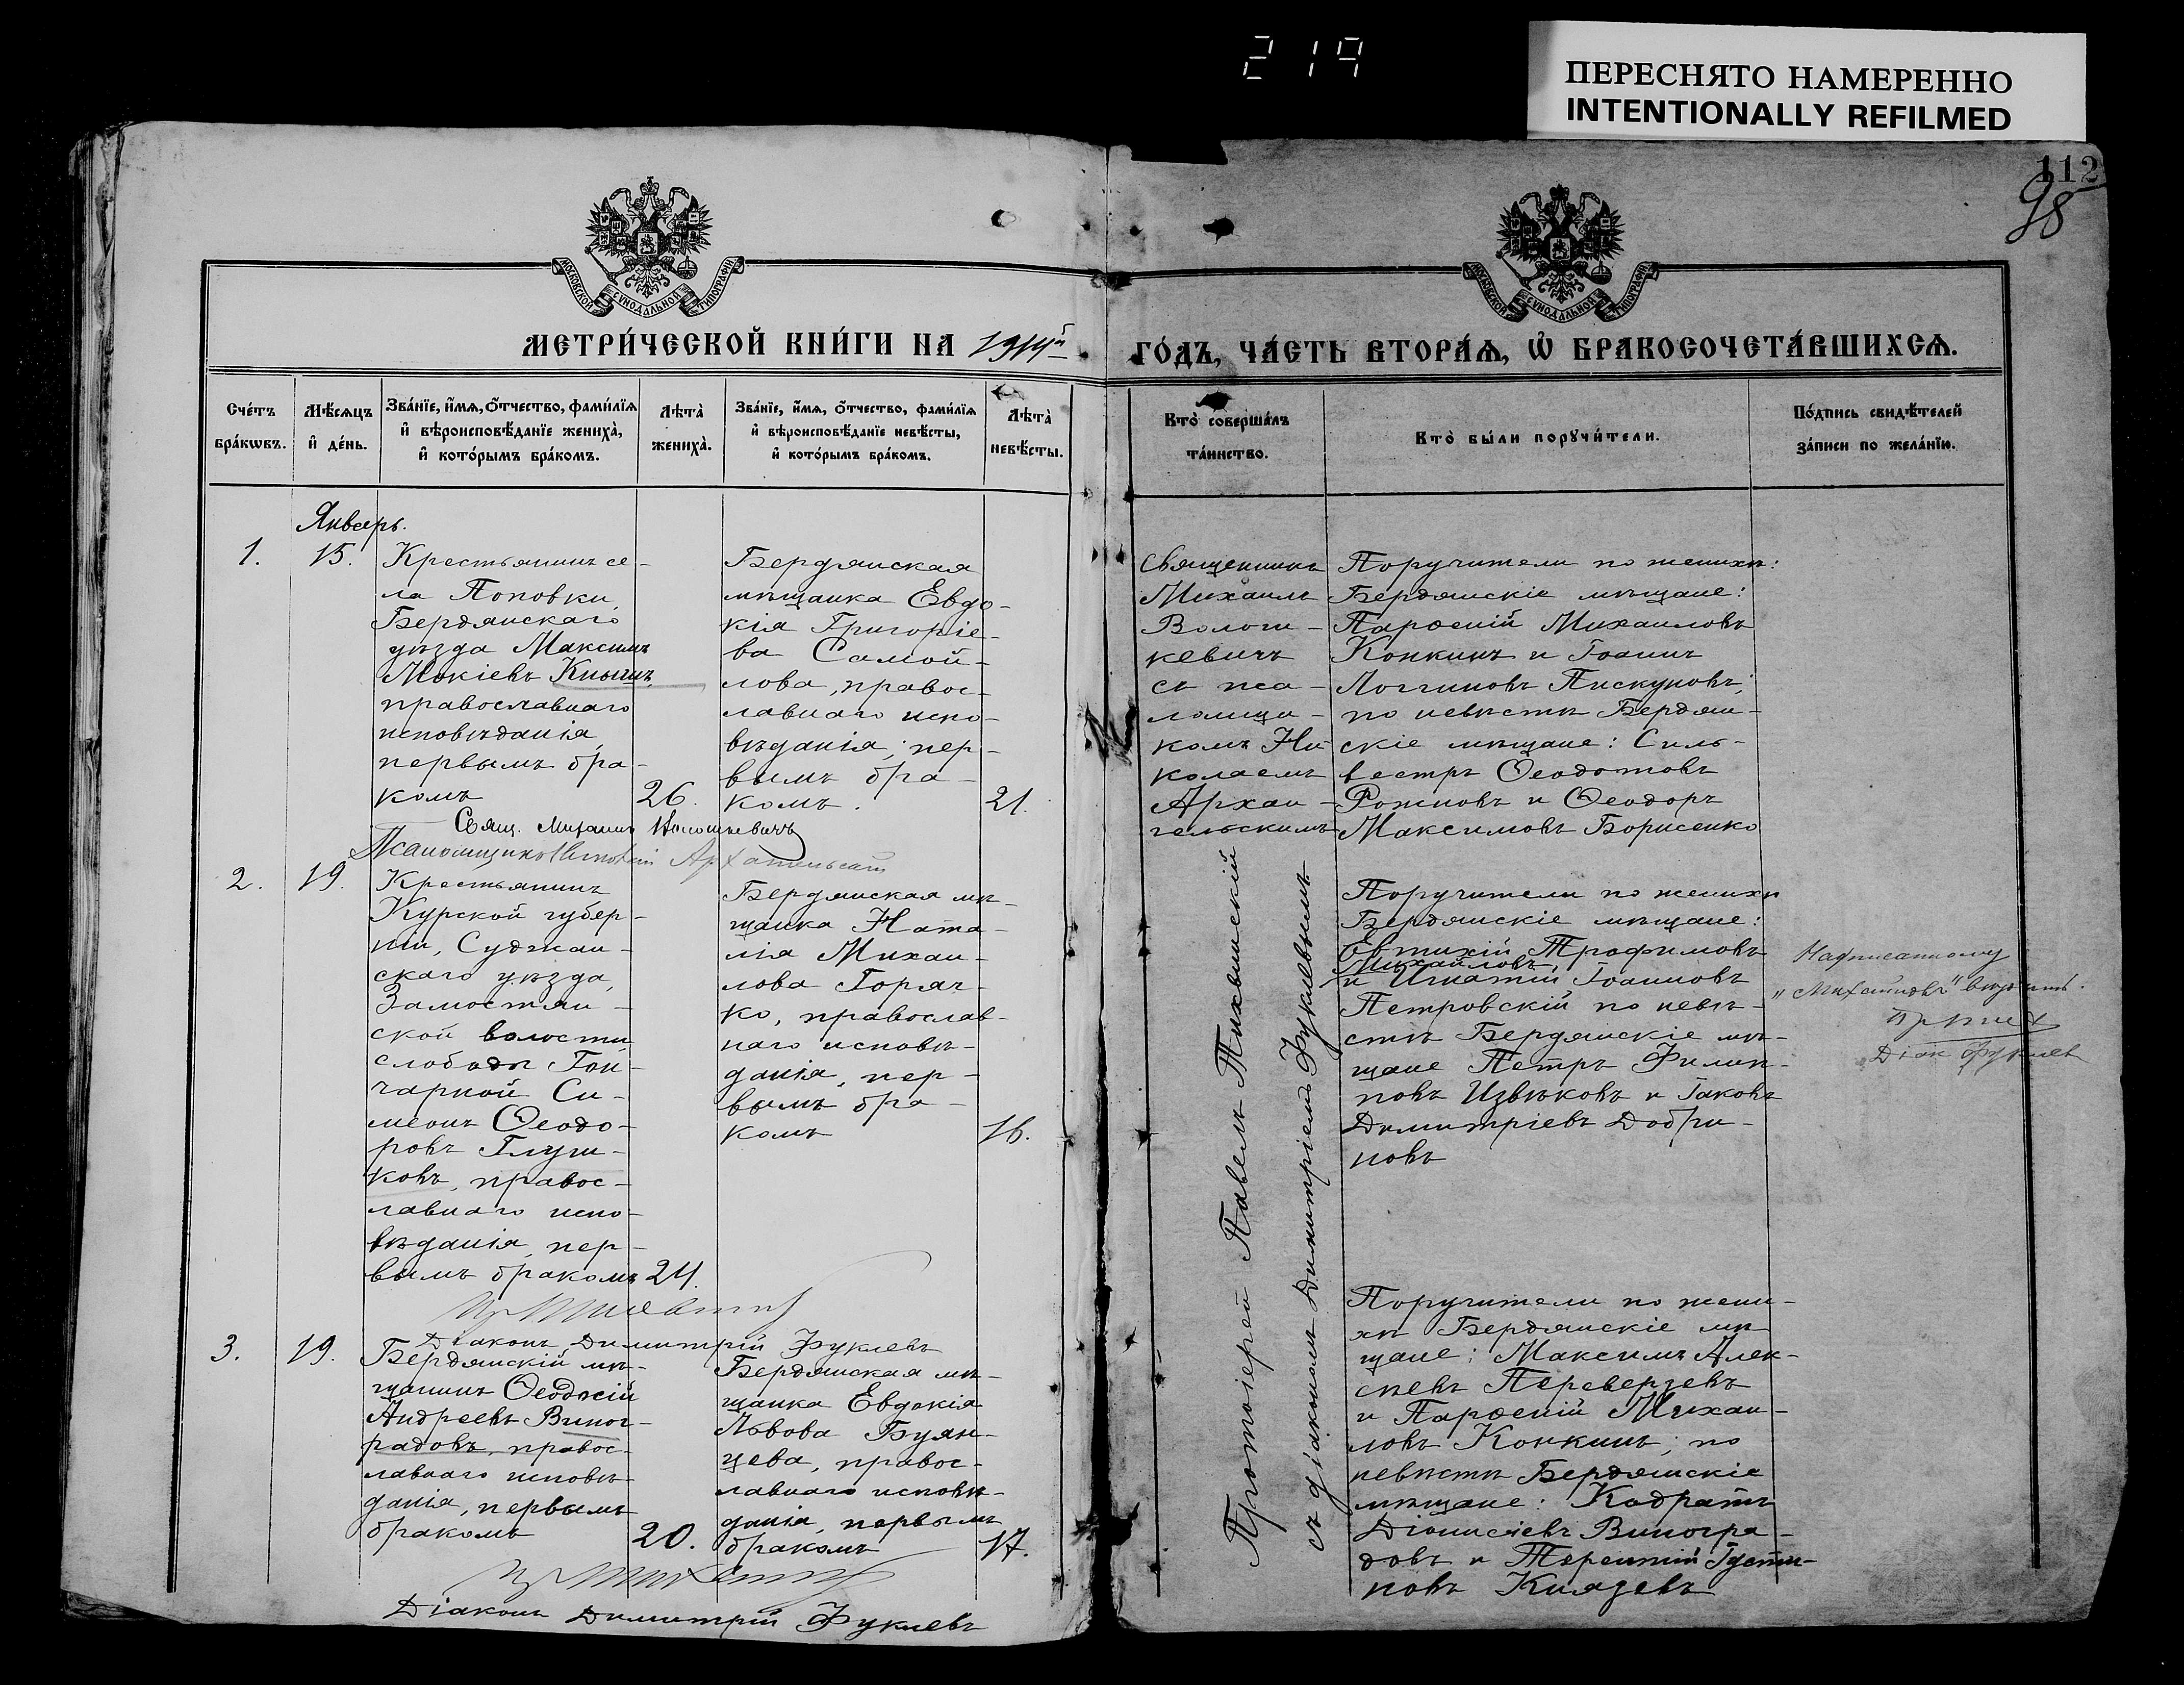 219
ПЕРЕСНЯТО НАМЕРЕННО
INTENTIONALLY REFILMED
112
98
МОСКОВСКОЙ СѴНОДАЛЬНОЙ ТИПОГРАФІИ
МОСКОВСКОЙ СѴНОДАЛЬНОЙ ТИПОГРАФІИ
МЕТРИ́ЧЕСКОЙ КНИ́ГИ НА 1914й
ГО́ДЪ, ЧА́СТЬ ВТОРА́Ѧ, Ѡ҆ БРАКОСОЧЕТА́ВШИХСѦ.
Сче́тъ
бра́кѡвъ.
Мѣ́сѧцъ
и҆ де́нь.
Зва́нїе, и҆́мѧ, ѻ҆́тчество, фами́лїѧ
и҆ вѣроисповѣ́данїе жениха̀,
и҆ кото́рымъ бра́комъ.
Лѣта̀
жениха̀.
Зва́нїе, и҆́мѧ, ѻ҆́тчество, фами́лїѧ
и҆ вѣроисповѣ́данїе невѣ́сты,
и҆ кото́рымъ бра́комъ.
Лѣта̀
невѣ́сты.
Кто̀ соверша́лъ
та́инство.
Кто̀ бы́ли порꙋчи́тели.
По́дпись свидѣ́телей
за́писи по жела́нїю.
Январь.
1.
15.
Крестьянинъ се-
ла Поповки,
Бердянскаго
уѣзда Максимъ
Мокіевъ Кныгъ,
православнаго
исповѣданія,
первымъ бра-
комъ
26.
Бердянская
мѣщанка Евдо-
кія Григоріе-
ва Самой-
лова, правос-
лавнаго испо-
вѣданія, пер-
вымъ бра-
комъ.
21.
Священникъ
Михаилъ
Волош-
кевичъ
съ пса-
ломщи-
комъ Ни-
колаемъ
Архан-
гельскимъ
Поручители по женихѣ:
Бердянскіе мѣщане:
Парѳеній Михаиловъ
Конкинъ и Іоаннъ
Логгиновъ Пискуновъ;
по невѣстѣ Бердян-
скіе мѣщане: Силь-
вестръ Ѳеодотовъ
Рожновъ и Ѳеодоръ
Максимовъ Борисенко
Свящ. Михаилъ Волошкевичъ
Псаломщикъ Николай Архангельскій
2.
19.
Крестьянинъ
Курской губер-
ніи, Суджан-
скаго уѣзда,
Замостян-
ской волости,
слободы Гон-
чарной Си-
меонъ Ѳеодо-
ровъ Глуш-
ковъ, правос-
лавнаго испо-
вѣданія, пер-
вымъ бракомъ
24.
Бердянская мѣ-
щанка Ната-
лія Михаи-
лова Горяч-
ко, православ-
наго исповѣ-
данія, пер-
вымъ бра-
комъ
16.
Протоіерей Павелъ Тихвинскій
съ діакономъ Димитріемъ Фуклевымъ
Поручители по женихѣ
Бердянскіе мѣщане:
Евтихій Трофимовъ
Михайловъ
и Игнатій Іоанновъ
Петровскій по невѣ-
стѣ Бердянскіе мѣ-
щане Петръ Филип-
повъ Извѣковъ и Іаковъ
Димитріевъ Добри-
новъ
Надписанному
"Михайловъ" вѣрить.
Діак Фуклев
Діаконъ Димитрій Фуклевъ
3.
19.
Бердянскій мѣ-
щанинъ Ѳеодосій
Андреевъ Виног-
радовъ, правос-
лавнаго исповѣ-
данія, первымъ
бракомъ
20.
Бердянская мѣ-
щанка Евдокія
Львова Буян-
цева, правос-
лавнаго исповѣ-
данія, первымъ
бракомъ
17.
Поручители по жени-
хѣ Бердянскіе мѣ-
щане: Максимъ Алек-
сѣевъ Переверзевъ
и Парѳеній Михаи-
ловъ Конкинъ; по
невѣстѣ Бердянскіе
мѣщане: Кодратъ
Діонисіевъ Виногра-
довъ и Терентій Іусти-
новъ Князевъ
Діаконъ Димитрій Фуклевъ